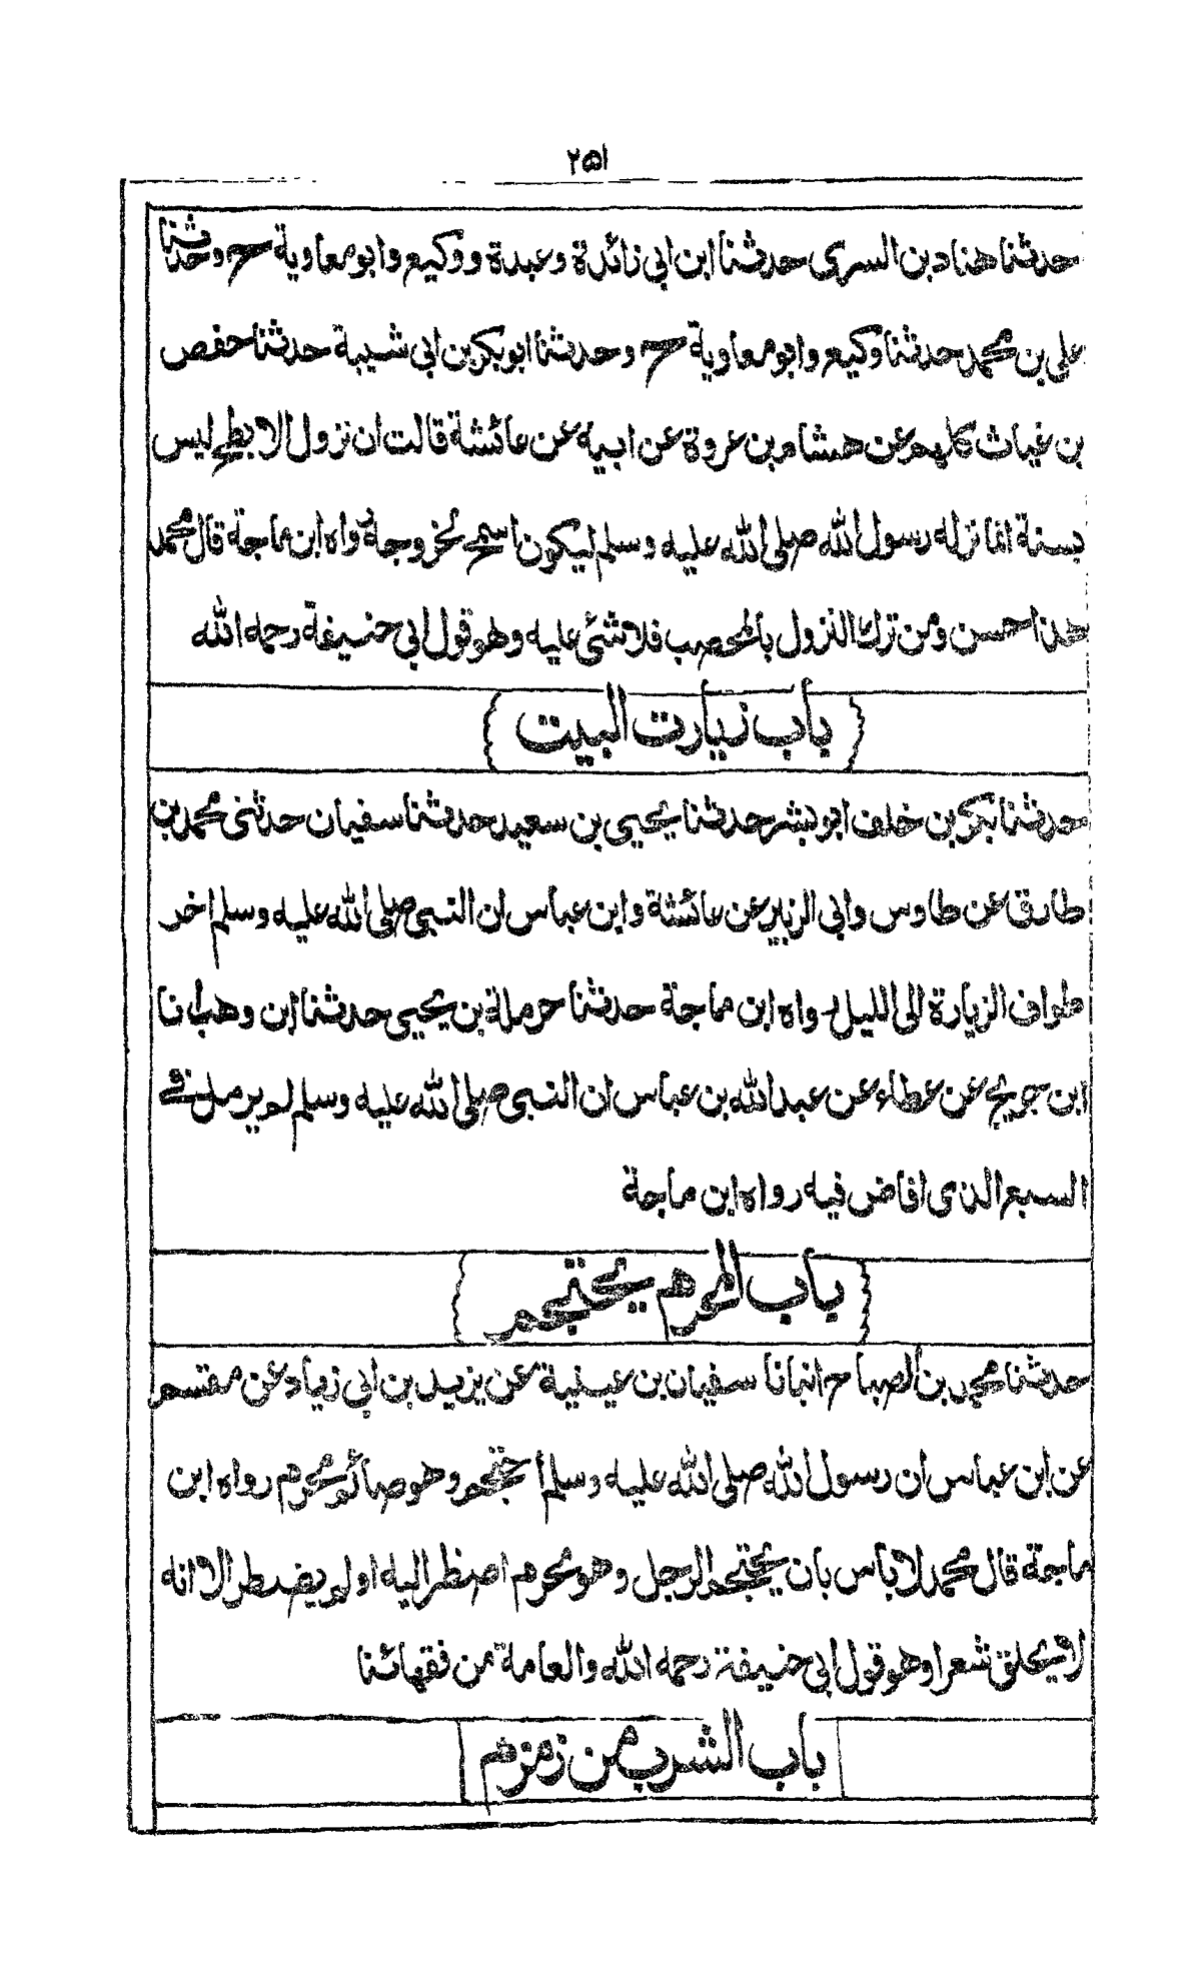 ٢٥١
حدثنا هناد بن السرى حدثنا ابن ابى زائدة وعبدة ووكيع وابو معاوية ح وحدثنا
على بن محمد حدثنا وكيع وابو معاوية ح وحدثنا ابو بكر بن ابى شيبة حدثنا حفص
بن غياث كلهم عن هشام بن عروة عن ابيه عن عائشة قالت ان نزول الابطح ليس
بسنة انما نزله رسول الله صلى الله عليه وسلم ليكون اسمح لخروجه رواه ابن ماجة قال محمد
هذا حسن ومن ترك النزول بالمحصب فلا شئ عليه وهو قول ابى حنيفة رحمه الله
باب زيارت البيت
حدثنا بكر بن خلف ابو بشر حدثنا يحيى بن سعيد حدثنا سفيان حدثنى محمد بن
طارق عن طاوس وابى الزبير عن عائشة وابن عباس ان النبى صلى الله عليه وسلم اخر
طواف الزيارة الى الليل رواه ابن ماجة حدثنا حرملة بن يحيى حدثنا ابن وهب انا
ابن جريج عن عطاء عن عبد الله بن عباس ان النبى صلى الله عليه وسلم لم يرمل فى
السبع الذى افاض فيه رواه ابن ماجة
باب المحرم يحتجم
حدثنا محمد بن الصباح انبانا سفيان بن عيينة عن يزيد بن ابى زياد عن مقسم
عن ابن عباس ان رسول الله صلى الله عليه وسلم احتجم وهو صائم محرم رواه ابن
ماجة قال محمد لا باس بان يحتجم الرجل وهو محرم اضطر اليه او لم يضطر الا انه
لا يحلق شعرا وهو قول ابى حنيفة رحمه الله والعامة من فقهائنا
باب الشرب من زمزم